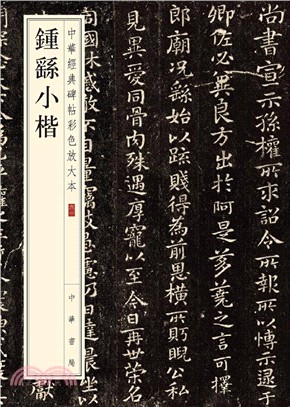 鍾繇小楷
中華經典碑帖彩色放大本
中華書局
尚書宣示孫權所求詔令所報所以博示逮于
卿佐必冀良方出於阿是芻蕘之言可擇
郎廟況繇始以疏賤得為前恩橫所眄睨公私
見異愛同骨肉殊遇厚寵以至今日再世榮名
同國休慼敢不自量竊致愚慮仍日達晨坐以
獻